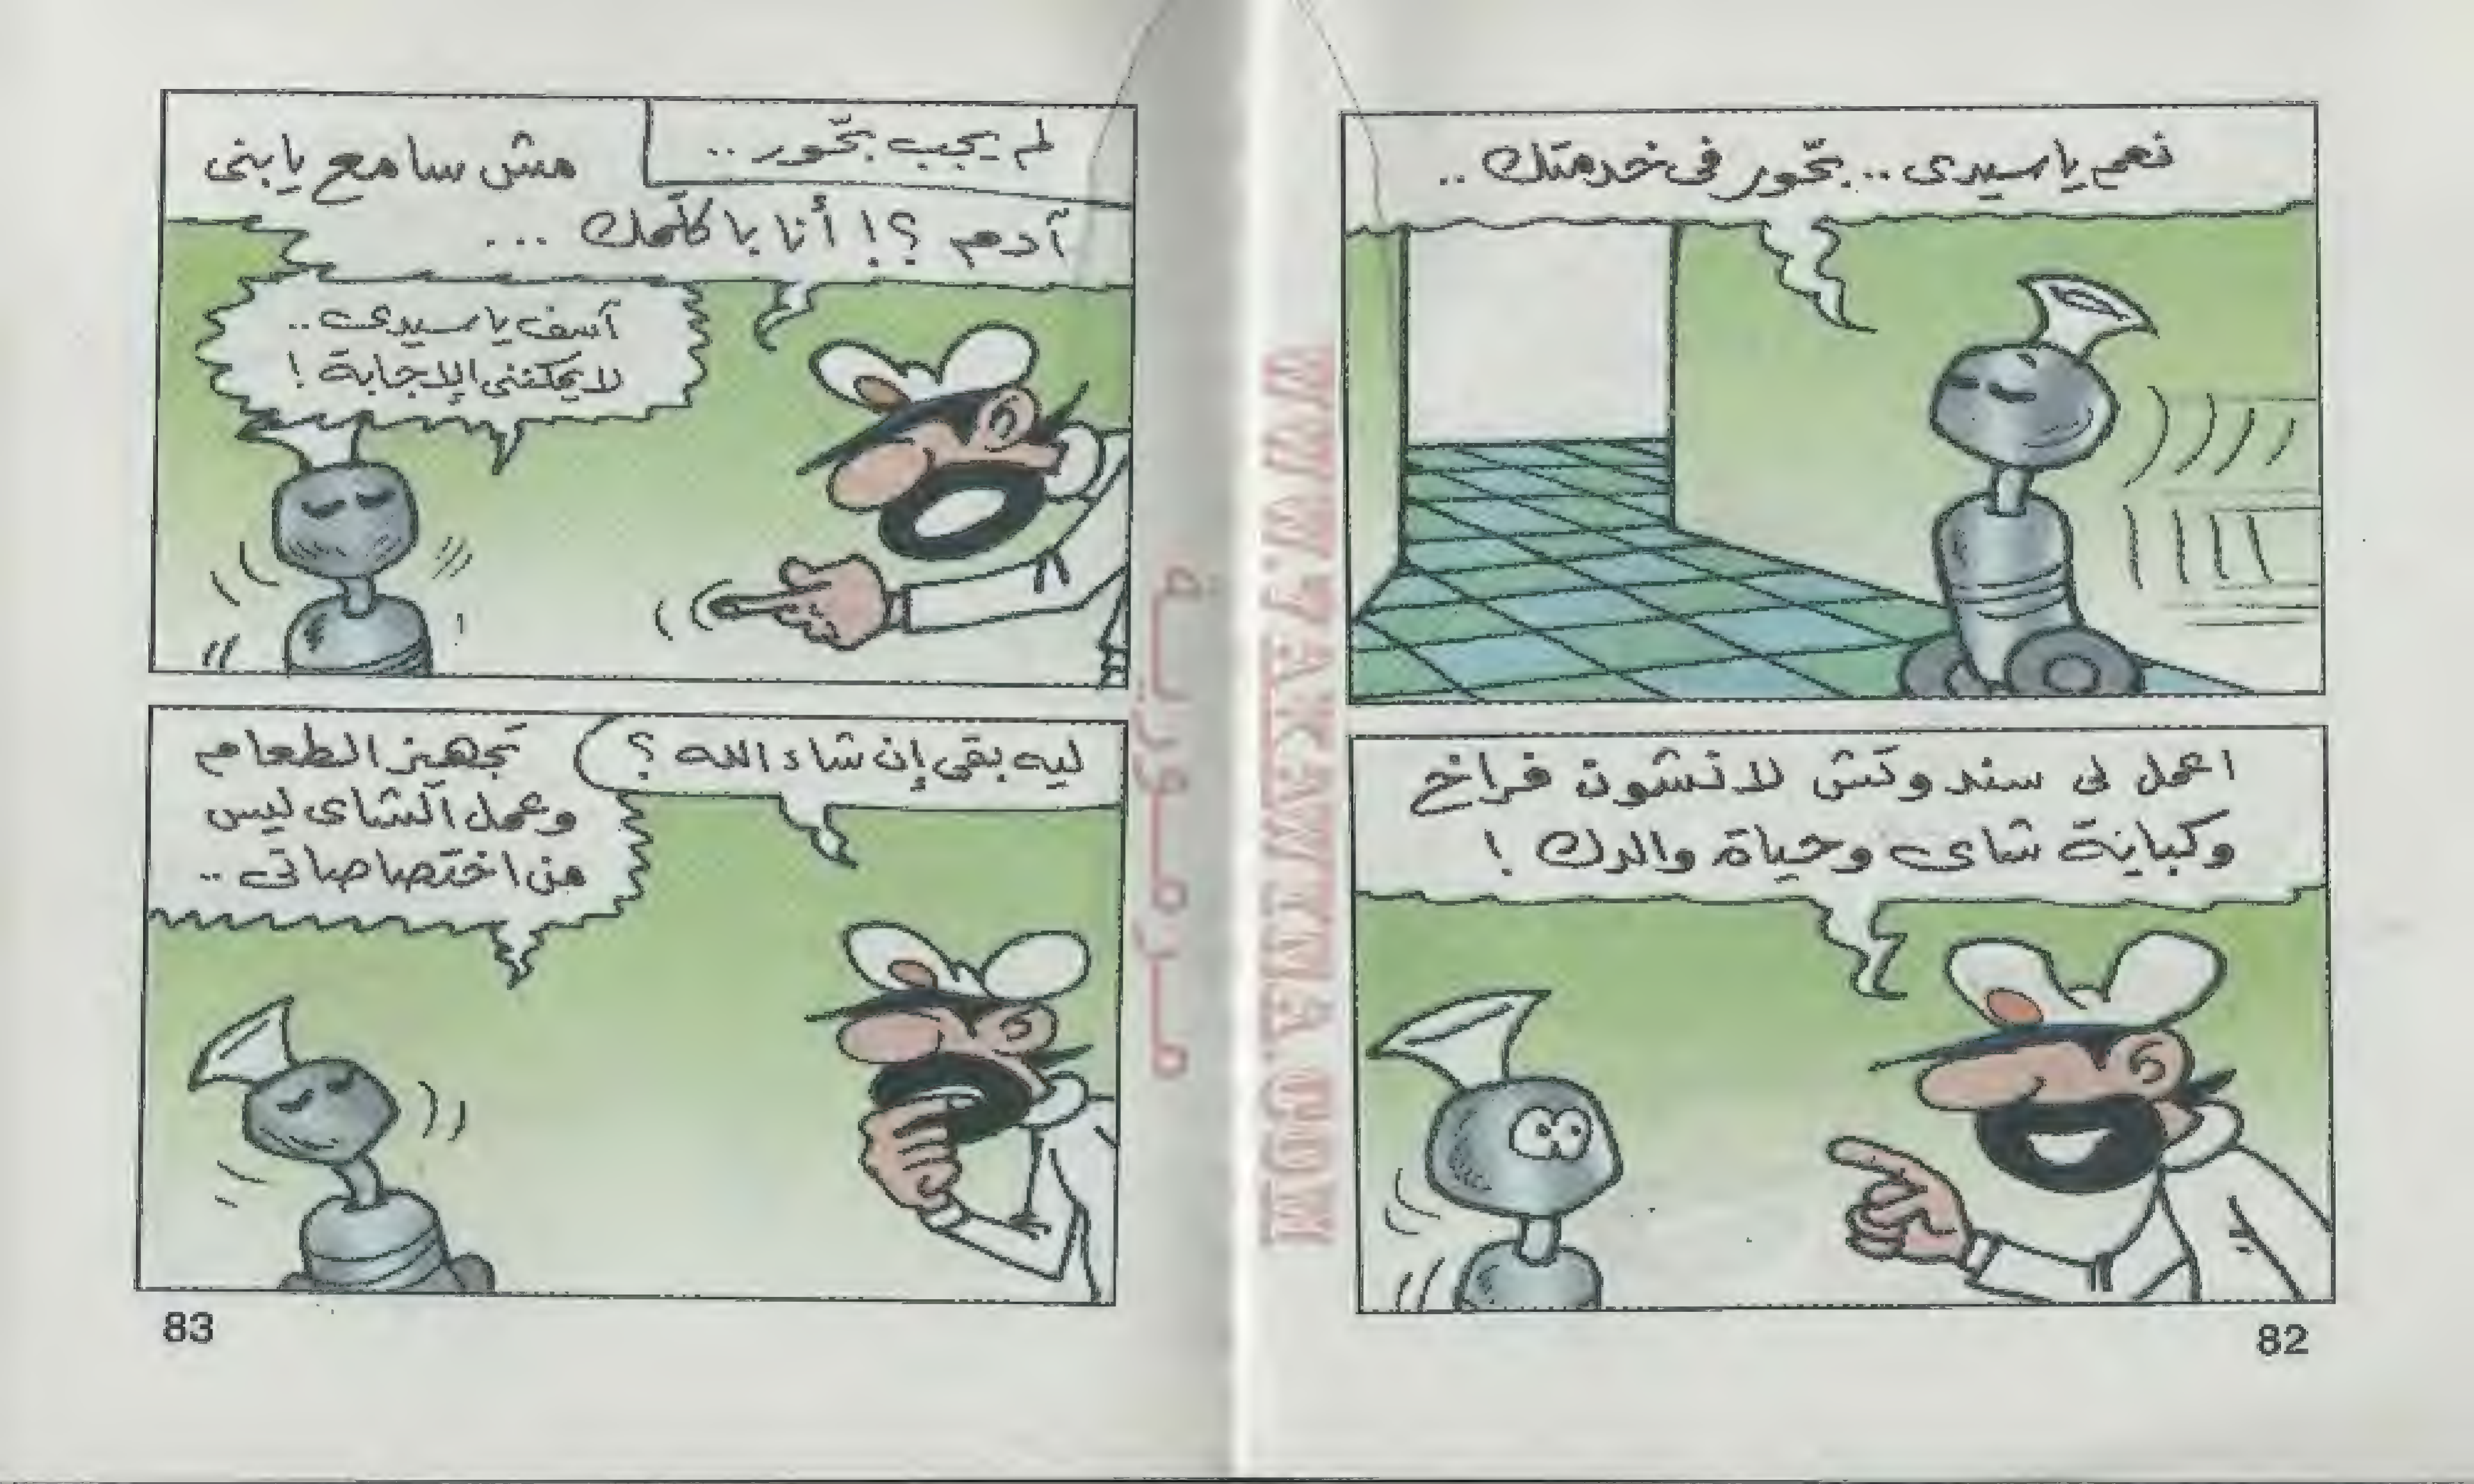 نعم ياسيدى .. بحّور فى خدمتك ..
اعمل لى سندوتش لانشون فراخ
وكباية شاى وحياة والدك !
82
لم يجب بحّور ..
مش سامع يابنى
آدم ؟! أنا باكلّمك ...
آسف ياسيدى ..
لايمكننى الإجابة !
ليه بقى إن شاء الله ؟
تجهيز الطعام
وعمل الشاى ليس
من اختصاصاتى ..
83
WWW.ZAKAWENA.COM